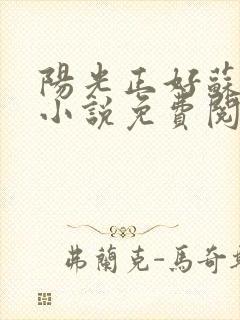 陽光正好蘇
小說免費閱
弗蘭克-馬奇